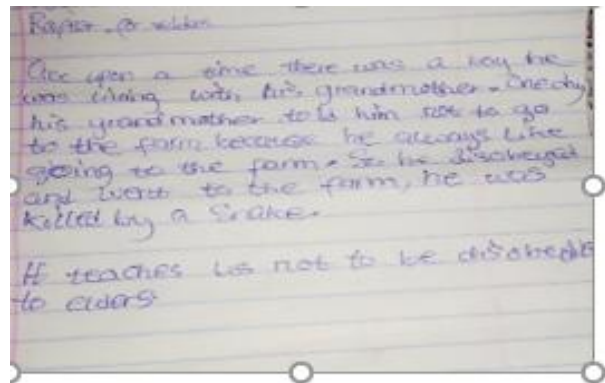 Once upon a time there was a boy he
was living with his grandmother. Oneday
his grandmother told him not to go
to the farm because he always like
going to the farm. So he disobeyed
and went to the farm, he was
killed by a Snake.
It teaches us not to be disobedie
to elders